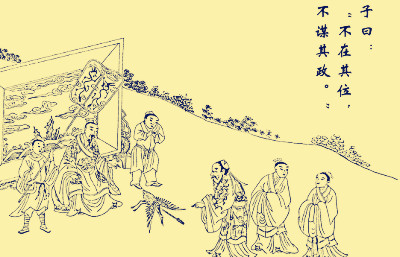 子曰：
“不在其位，
不谋其政。”